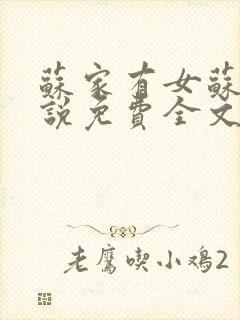 蘇家有女蘇
說免費全文
老鷹喫小鸡2